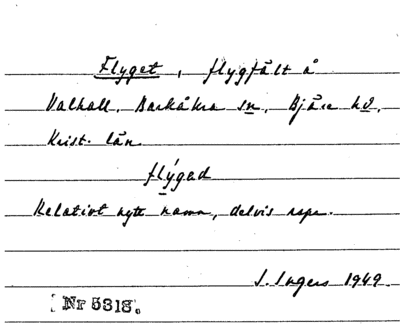 Flyget, flygfält å
Valhall, Barkåkra sn, Bjäre hd,
Krist. län.
flýgad
Relativt nytt namn, delvis rspr.
I. Ingers 1949.
Nr 5318.